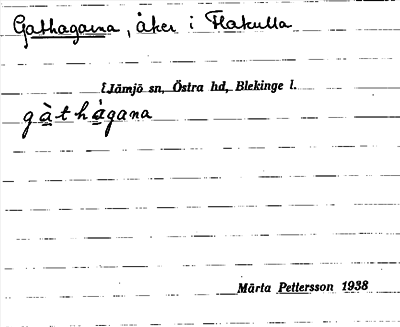 Gathagarna, åker i Flakulla
i Jämjö sn, Östra hd, Blekinge l.
gàthàgana
Märta Pettersson 1938